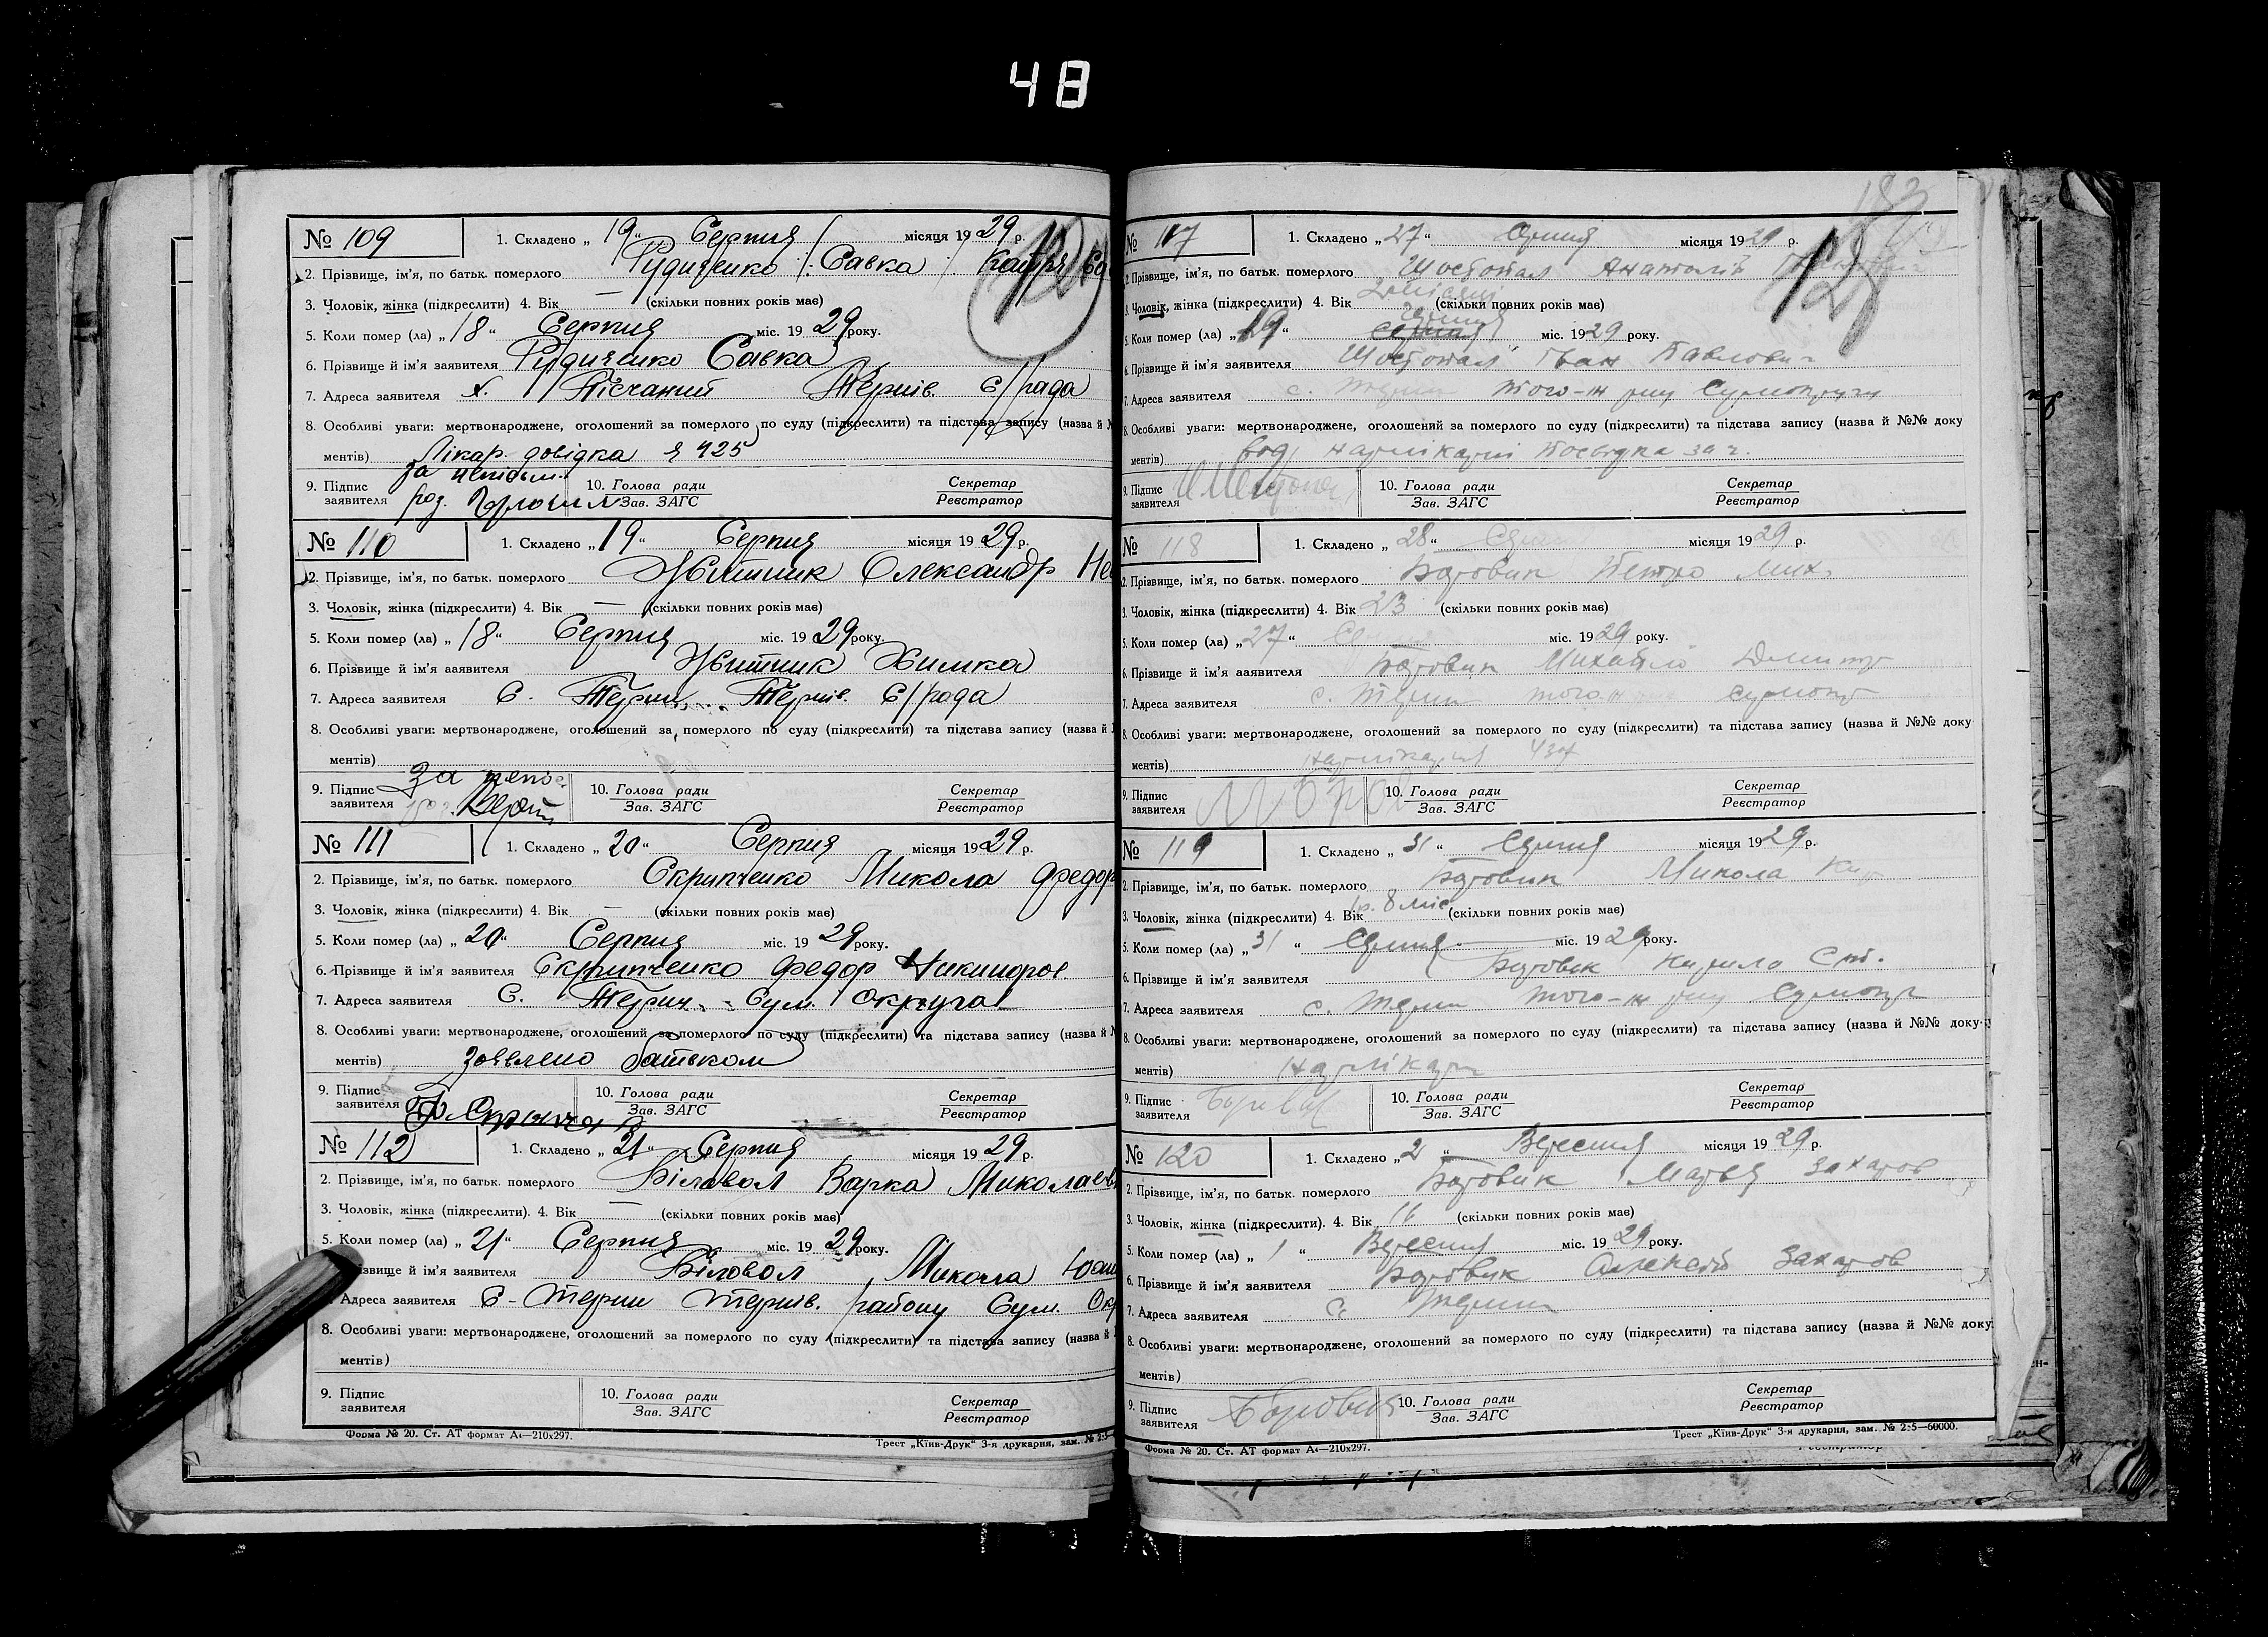 48
№ 109
1. Складено „ 19 “ Серпня місяця 19 29 р.
2. Прізвище, ім'я, по батьк. померлого Савка
3. Чоловік, жінка (підкреслити) 4. Вік — (скільки повних років має)
5. Коли помер (ла) „ 18 “ Серпня міс. 19 29 року.
6. Прізвище й ім'я заявителя Савка
7. Адреса заявителя х. Пісчаний Тернів. С/рада
8. Особливі уваги: мертвонароджене, оголошений за померлого по суду (підкреслити) та підстава запису (назва й
ментів) Лікар. довідка 425
9. Підпис заявителя за
10. Голова ради Зав. ЗАГС
Секретар Реєстратор
№ 110
1. Складено „ 19 “ Серпня місяця 19 29 р.
2. Прізвище, ім'я, по батьк. померлого Житник Олександр
3. Чоловік, жінка (підкреслити) 4. Вік — (скільки повних років має)
5. Коли помер (ла) „ 18 “ Серпня міс. 19 29 року.
6. Прізвище й ім'я заявителя Житник Химка
7. Адреса заявителя С. Терни Тернів. С/рада
8. Особливі уваги: мертвонароджене, оголошений за померлого по суду (підкреслити) та підстава запису (назва й
ментів)
9. Підпис заявителя За
10. Голова ради Зав. ЗАГС
Секретар Реєстратор
№ 111
1. Складено „ 20 “ Серпня місяця 19 29 р.
2. Прізвище, ім'я, по батьк. померлого Скрипченко Микола Федор
3. Чоловік, жінка (підкреслити) 4. Вік — (скільки повних років має)
5. Коли помер (ла) „ 20 “ Серпня міс. 19 29 року.
6. Прізвище й ім'я заявителя Скрипченко Федор Никифоров
7. Адреса заявителя С. Терни Сум. Округа
8. Особливі уваги: мертвонароджене, оголошений за померлого по суду (підкреслити) та підстава запису (назва й
ментів) Заявлено батьком
9. Підпис заявителя
10. Голова ради Зав. ЗАГС
Секретар Реєстратор
№ 112
1. Складено „ 21 “ Серпня місяця 19 29 р.
2. Прізвище, ім'я, по батьк. померлого Біловол Варка Миколаев
3. Чоловік, жінка (підкреслити). 4. Вік — (скільки повних років має)
5. Коли помер (ла) „ 21 “ Серпня міс. 19 29 року.
ізвище й ім'я заявителя Біловол Микола
Адреса заявителя С. Терни Тернів. району Сум. Окр
8. Особливі уваги: мертвонароджене, оголошений за померлого по суду (підкреслити) та підстава запису (назва й
ментів)
9. Підпис заявителя
10. Голова ради Зав. ЗАГС
Секретар Реєстратор
Форма № 20. Ст. АТ формат А₄—210х297.
Трест „Київ-Друк“ 3-я друкарня, зам. №
№ 117
1. Складено „ 27 “ Серпня місяця 19 29 р.
2. Прізвище, ім'я, по батьк. померлого Анатолій
3. Чоловік, жінка (підкреслити) 4. Вік (скільки повних років має)
5. Коли помер (ла) міс. 19 29 року.
6. Прізвище й ім'я заявителя Іван Павлович
7. Адреса заявителя с. Терни того-ж р-ну Сумокруги
8. Особливі уваги: мертвонароджене, оголошений за померлого по суду (підкреслити) та підстава запису (назва й №№ доку
ментів)
9. Підпис заявителя
10. Голова ради Зав. ЗАГС
Секретар Реєстратор
№ 118
1. Складено „ 28 “ місяця 19 29 р.
2. Прізвище, ім'я, по батьк. померлого Боровик Петро Мих.
3. Чоловік, жінка (підкреслити) 4. Вік 23 (скільки повних років має)
5. Коли помер (ла) „ 27 “ міс. 19 29 року.
6. Прізвище й ім'я заявителя Боровик Михайло Дмитр
7. Адреса заявителя с. Терни того ж
8. Особливі уваги: мертвонароджене, оголошений за померлого по суду (підкреслити) та підстава запису (назва й №№ доку
ментів)
9. Підпис заявителя
10. Голова ради Зав. ЗАГС
Секретар Реєстратор
№ 119
1. Складено „ 31 “ Серпня місяця 19 29 р.
2. Прізвище, ім'я, по батьк. померлого Боровик Микола
3. Чоловік, жінка (підкреслити) 4. Вік 1р. 8 міс (скільки повних років має)
5. Коли помер (ла) „ 31 “ Серпня міс. 19 29 року.
6. Прізвище й ім'я заявителя Боровик Кирило
7. Адреса заявителя с. Терни того-ж р-ну
8. Особливі уваги: мертвонароджене, оголошений за померлого по суду (підкреслити) та підстава запису (назва й №№ доку-
ментів)
9. Підпис заявителя
10. Голова ради Зав. ЗАГС
Секретар Реєстратор
№ 120
1. Складено „ 2 “ Вересня місяця 19 29 р.
2. Прізвище, ім'я, по батьк. померлого Боровик Марья Захаров
3. Чоловік, жінка (підкреслити). 4. Вік (скільки повних років має)
5. Коли помер (ла) „ 1 “ Вересня міс. 19 29 року.
6. Прізвище й ім'я заявителя Боровик Алексей Захаров
7. Адреса заявителя С. Терни
8. Особливі уваги: мертвонароджене, оголошений за померлого по суду (підкреслити) та підстава запису (назва й №№ доку
ментів)
9. Підпис заявителя Боровик
10. Голова ради Зав. ЗАГС
Секретар Реєстратор
Форма № 20. Ст. АТ формат А₄—210х297.
Трест „Київ-Друк“ 3-я друкарня, зам. № 2:5—60000.